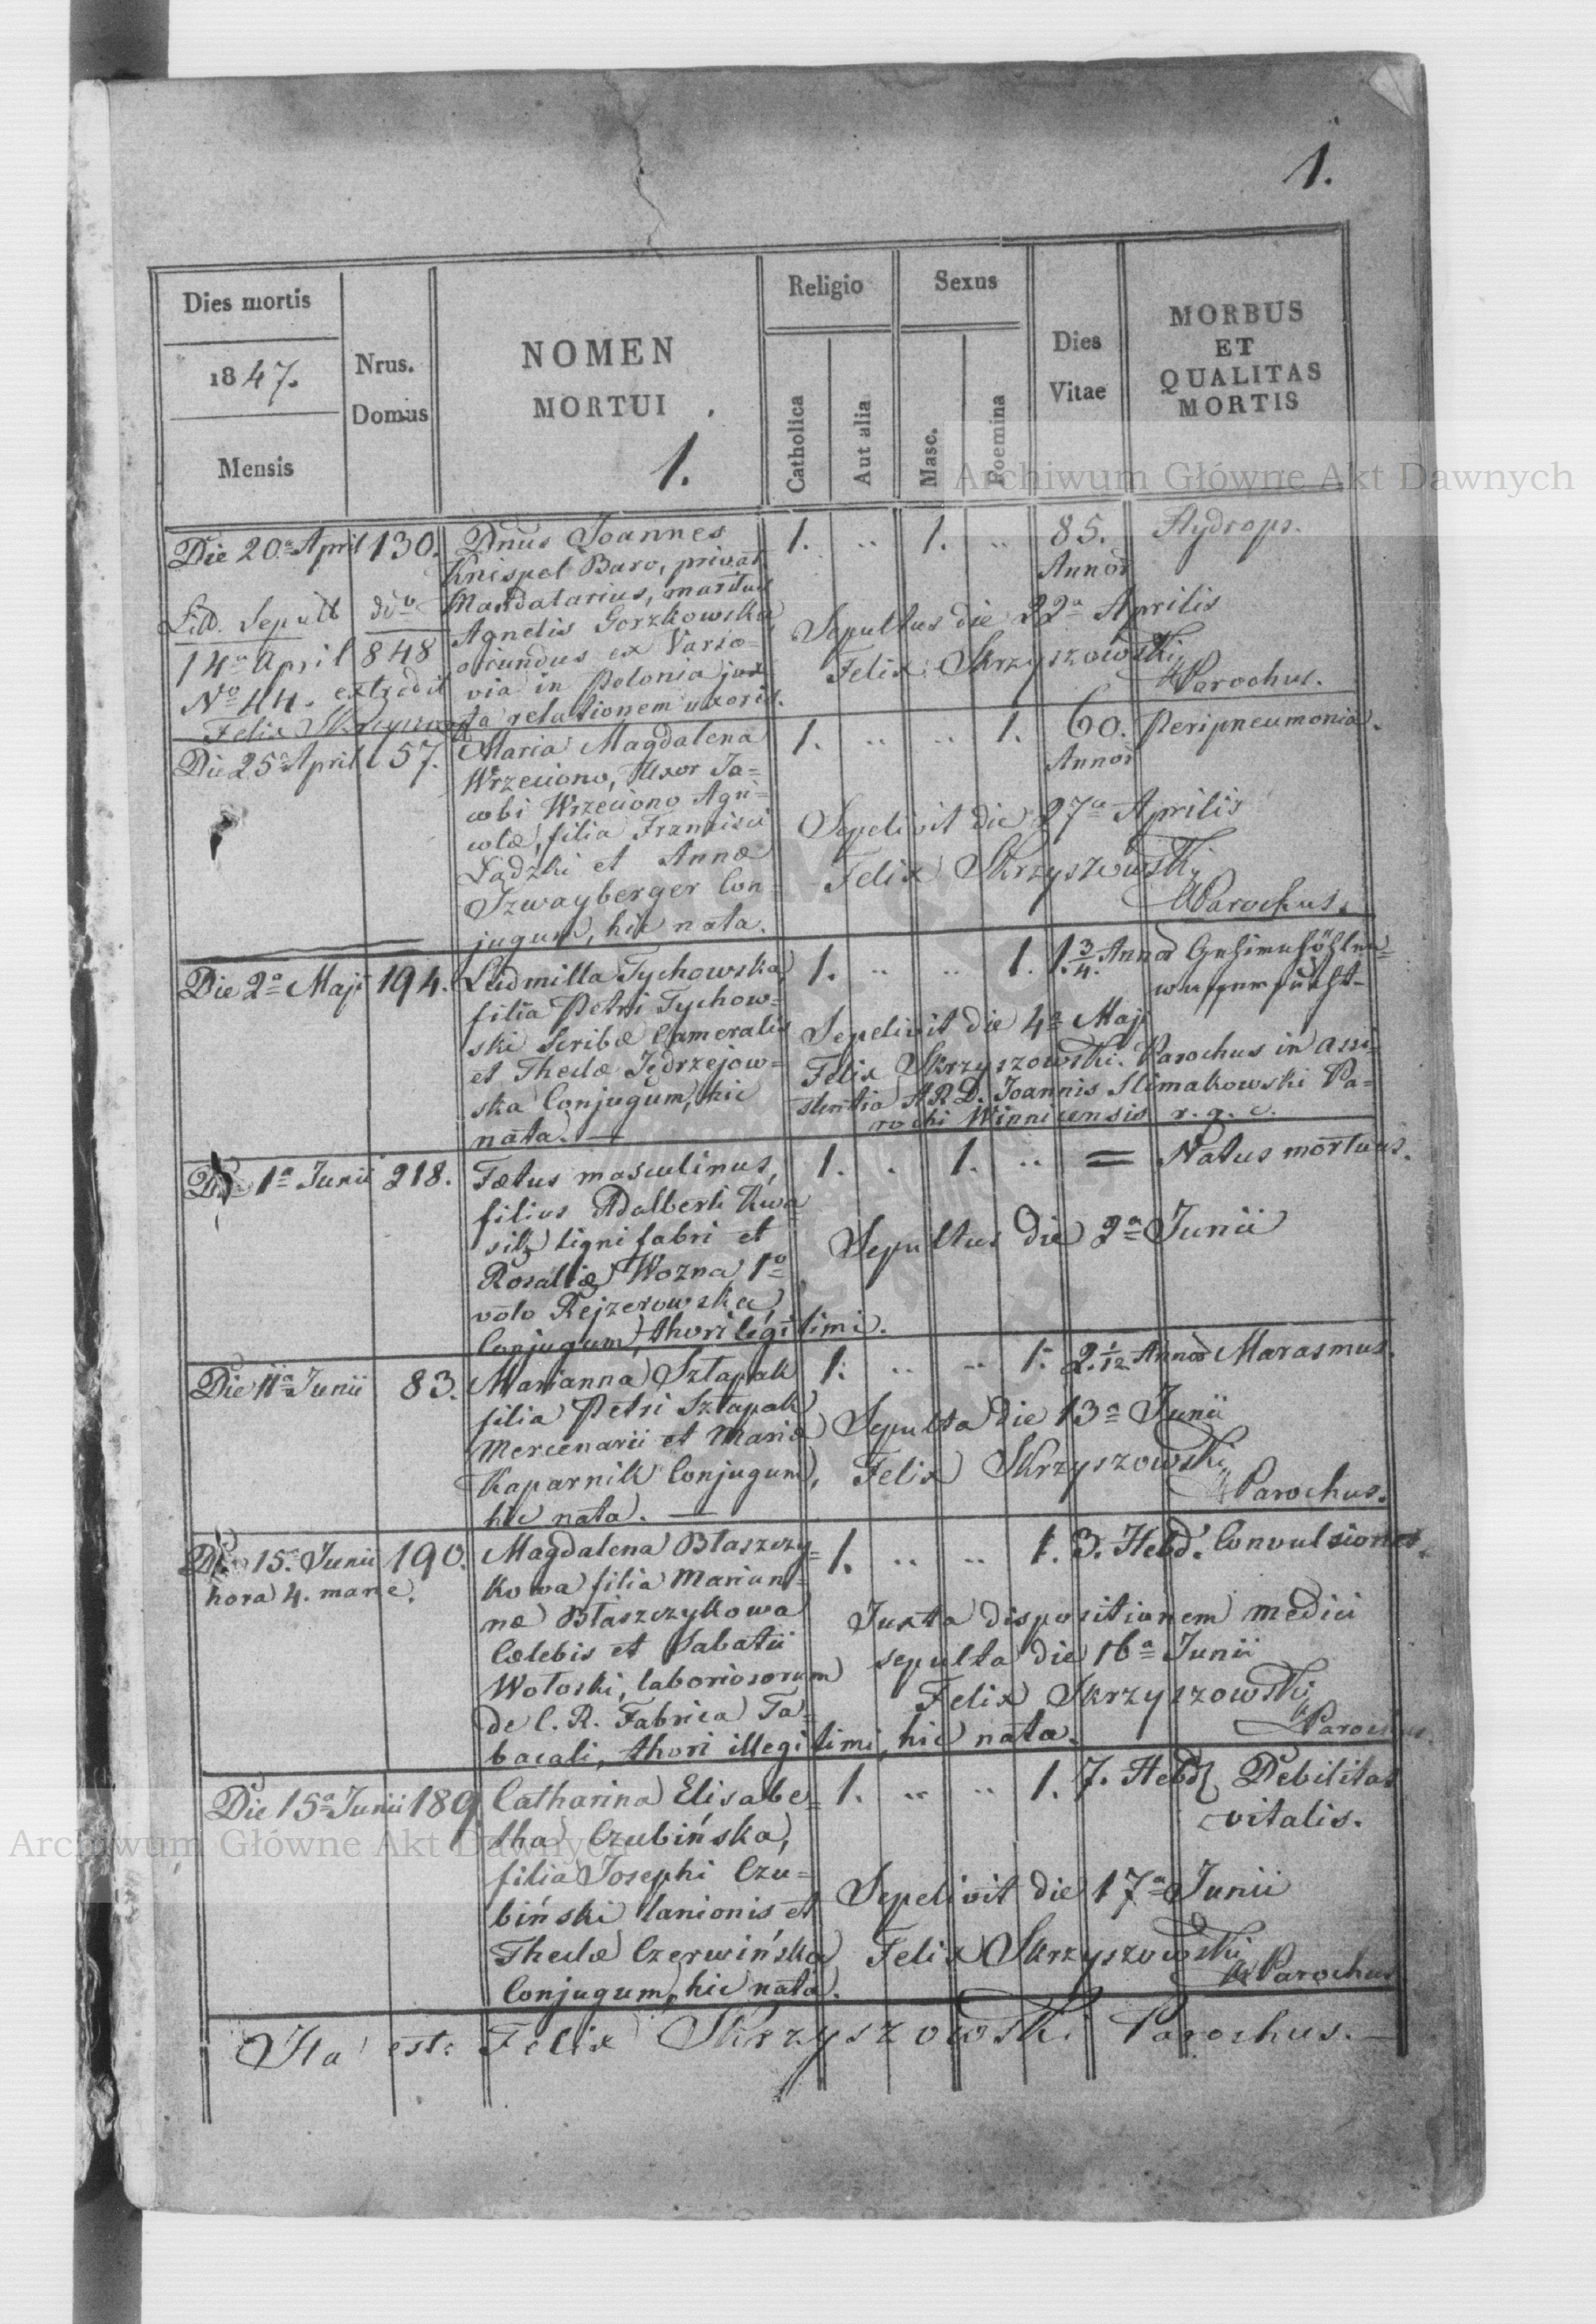 1.
Dies mortis
1847.
Mensis
Nrus.
Domus
NOMEN
MORTUI
1.
Religio
Catholica
Aut alia
Sexus
Masc.
Foemina
Dies
Vitae
MORBUS
ET
QUALITAS
MORTIS
Archiwum Główne Akt Dawnych
Die 20a April 130. Dnus Joannes 1. .. 1. .. 85. Hydrops.
Knispel Baro, privat. Annor
Mandatarius, maritus
Agnetis Gorzkowska
oriundus ex Varso-
via in Polonia jux
ta relationem uxoris.
Litt. Sepult ddo
14a April 848
No 44. extradit
Felix Skrzyszowski
Sepultus die 22a Aprilis
Felix Skrzyszowski
Parochus.
Die 25a April 157. Maria Magdalena 1. .. .. 1. 60. Peripneumonia.
Wrzeciono, Uxor Ja- Annor
cobi Wrzeciono Agri-
colæ, filia Francisci
Ządzki et Annæ
Szwayberger Con-
jugum, hic nata.
Sepelivit die 27a Aprilis
Felix Skrzyszowski
Parochus.
Die 2a Maji 194. Ludmilla Tychowska 1. .. .. 1. 1 3/4. Annor Gehirnhöhlen-
wassersucht
filia Petri Tychow-
ski Scribæ Cameralis
et Theclæ Jędrzejow-
ska Conjugum, hic
nata. —
Sepelivit die 4a Maji
Felix Skrzyszowski. Parochus in assi-
stentia A R. D. Joannis Slimakowski Pa-
rochi Winnicensis r. g. c.
Die 1a Junii 218. Fœtus masculinus, 1. . 1. .. = Natus mortuus.
filius Adalberti Kwa
silz ligni fabri et
Rosaliæ Wozna 1o
voto Rejzerowska,
Conjugum, thori legitimi.
Sepultus die 2a Junii
Die 11a Junii 83. Marianna Sztapak 1. .. .. 1. 2. 1/12 Annor Marasmus.
filia Petri Sztapak
Mercenarii et Mariæ
Kaparnik Conjugum,
hic nata. —
Sepulta die 13a Junii
Felix Skrzyszowski
Parochus.
Die 15. Junii 190. Magdalena Błaszczy- 1. .. .. 1. 3. Hebd. Convulsiones.
hora 4. mane.
kowa filia Marian-
næ Błaszczykowa
Cœlebis et Sabatii
Wołoski, laboriosorum
de C. R. Fabrica Ta-
bacali, thori illegitimi, hic nata.
Juxta dispositionem medici
sepulta die 16a Junii
Felix Skrzyszowski
Parochus
Die 15a Junii 189. Catharina Elisabe- 1. .. .. 1. 7. Hebd Debilitas
vitalis.
tha Czubińska,
filia Josephi Czu-
biński lanionis et
Theclæ Czerwińska
Conjugum, hic nata.
Sepelivit die 17a Junii
Felix Skrzyszowski
Parochus
Archiwum Główne Akt Dawnych
Ita est: Felix Skrzyszowski Parochus. —